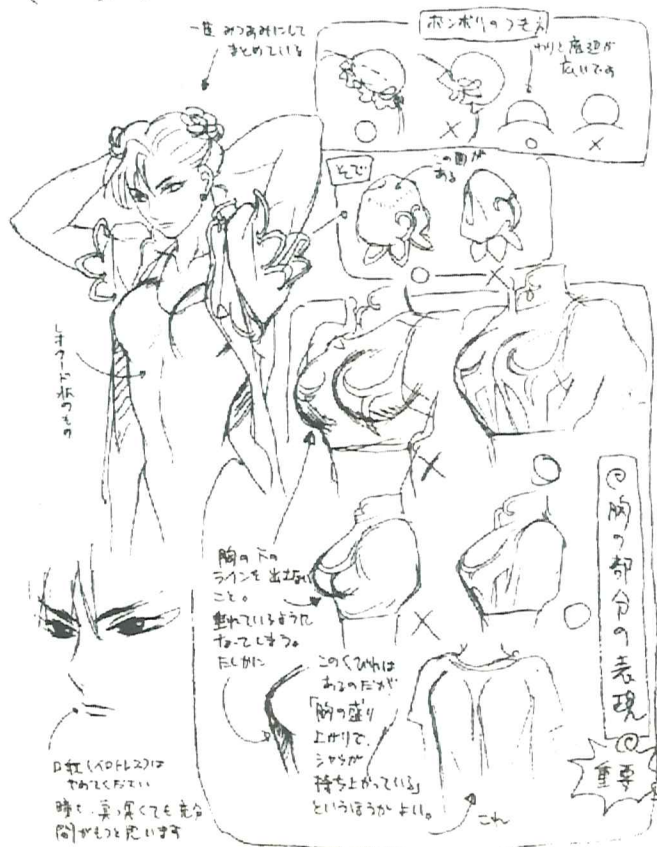 一度 みつあみにして
まとめている
ボンボリのつもえ
わりと底辺が
広いです
○
×
○
×
そで
この面が
ある
○
×
レオタード状のもの
×
○
胸の下の
ラインを出さない
こと。
垂れているように
なってしまう。
たしかに
×
○
このくびれは
あるのだが
「胸の盛り
上がりで、
シャツが
持ち上がっている」
というほうがよい。
これ
◎胸の部分の表現◎
重要
口紅(ベロドレス)は
やめてください
瞳も、真っ黒くても充分
間がもつと思います